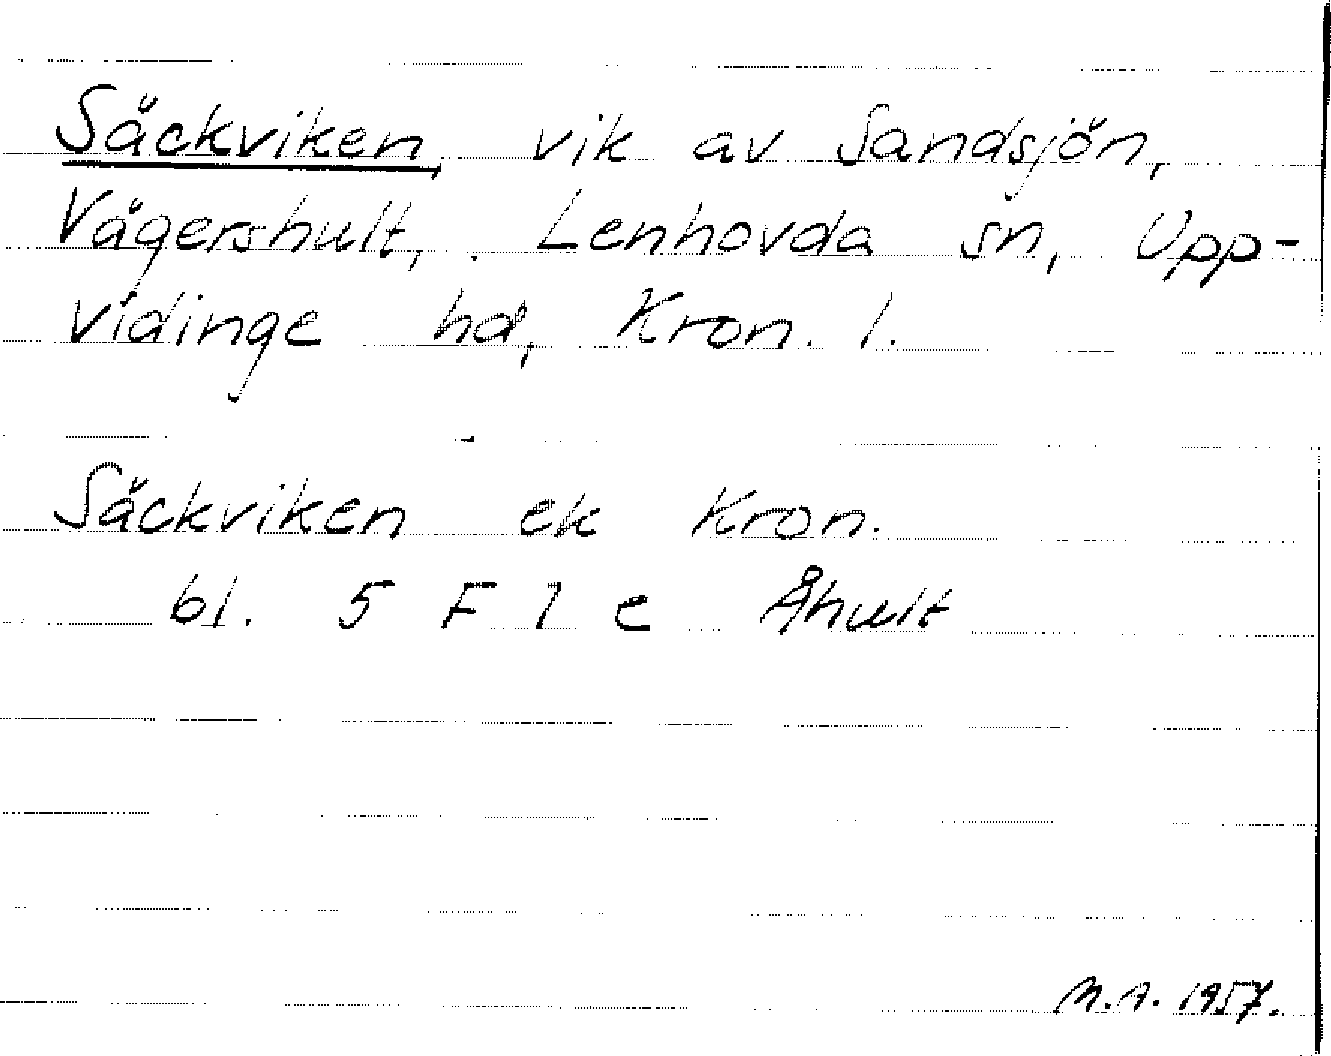 Säckviken, vik av Sandsjön,
Vägershult, Lenhovda sn, Upp-
vidinge hd, Kron. l.
Säckviken ek Kron.
bl. 5 F 1 e Åhult
M.A. 1957.